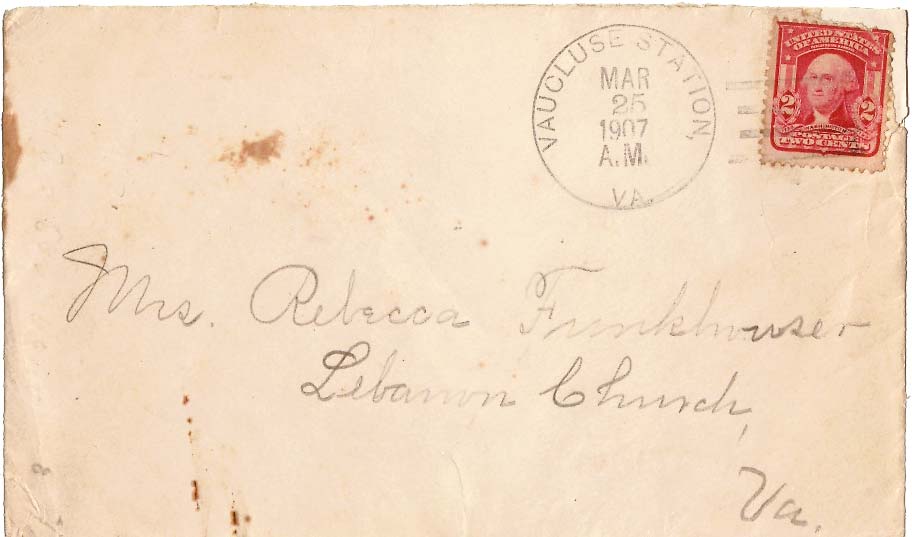 VAUCLUSE STATION,
MAR
25
1907
A.M.
VA.
UNITED STATES
OF AMERICA
2 2
POSTAGE
TWO CENTS
Mrs. Rebecca Funkhouser
Lebanon Church,
Va.